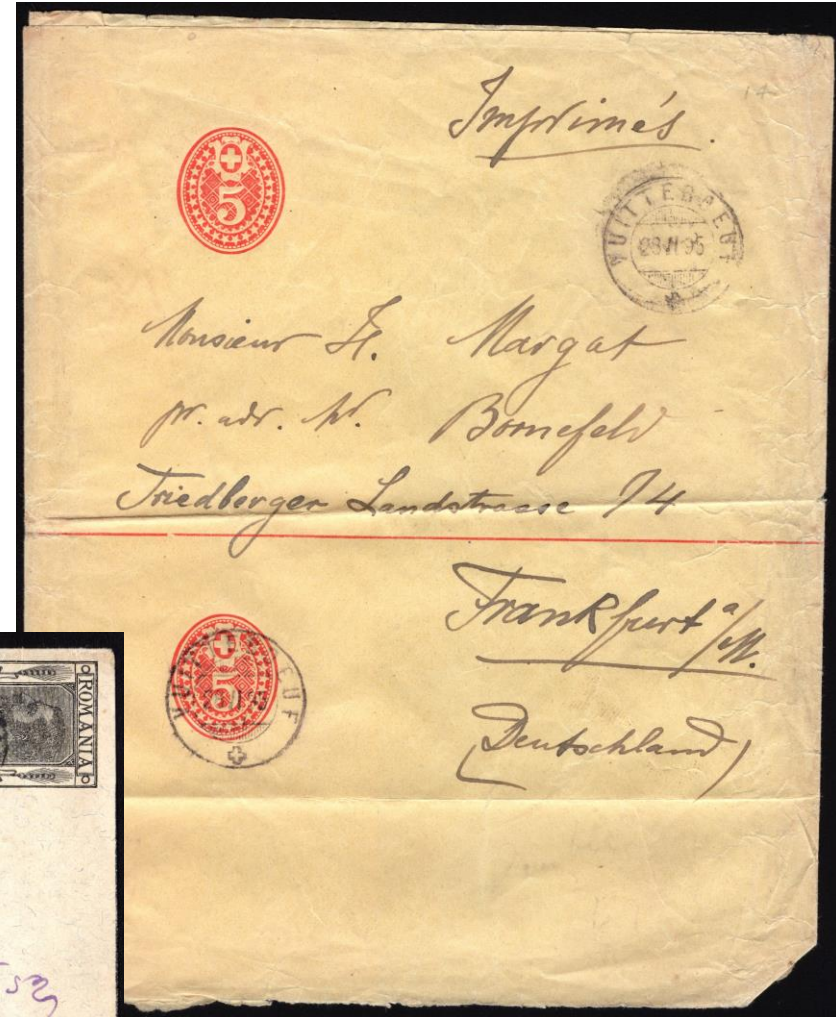 Imprimés.
5
VUITTEBŒUF
28 VI 95
Monsieur H. Margat
pr. adr. Mr. Bornefeld
Friedberger Landstrasse 74
Frankfurt a/M.
5
(Deutschland)
ROMANIA